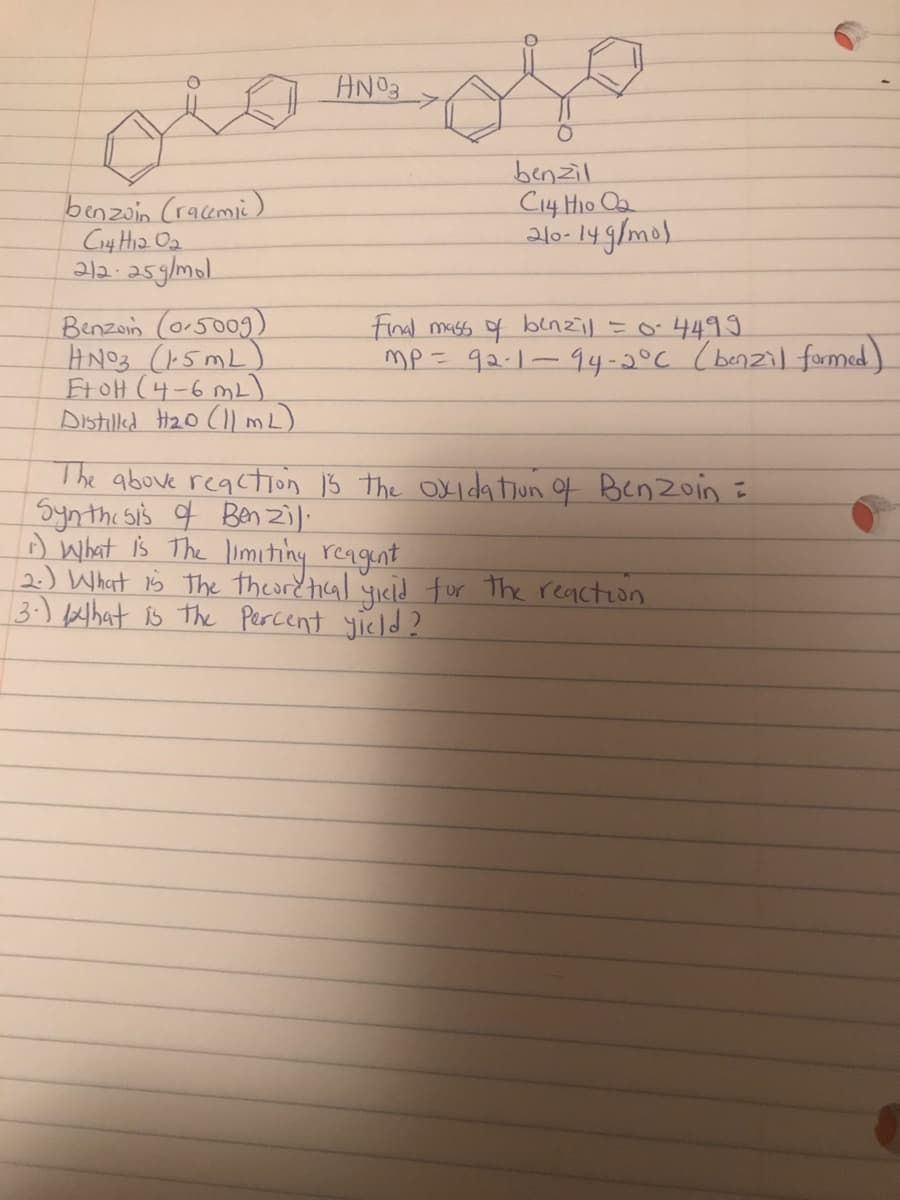 O
HNO3
O
O
benzoin (racemic)
C14H12O2
212.25g/mol
benzil
C14H10O2
210-14g/mol
Benzoin (0.500g)
HNO3 (1.5mL)
EtOH (4-6 mL)
Distilled H2O (11 mL)
Final mass of benzil = 0.449g
mp = 92.1 - 94.2°C (benzil formed)
The above reaction is the oxidation of Benzoin :
Synthesis of Benzil.
1.) What is The limiting reagent
2.) What is the theoretical yield for The reaction
3.) What is the Percent yield?